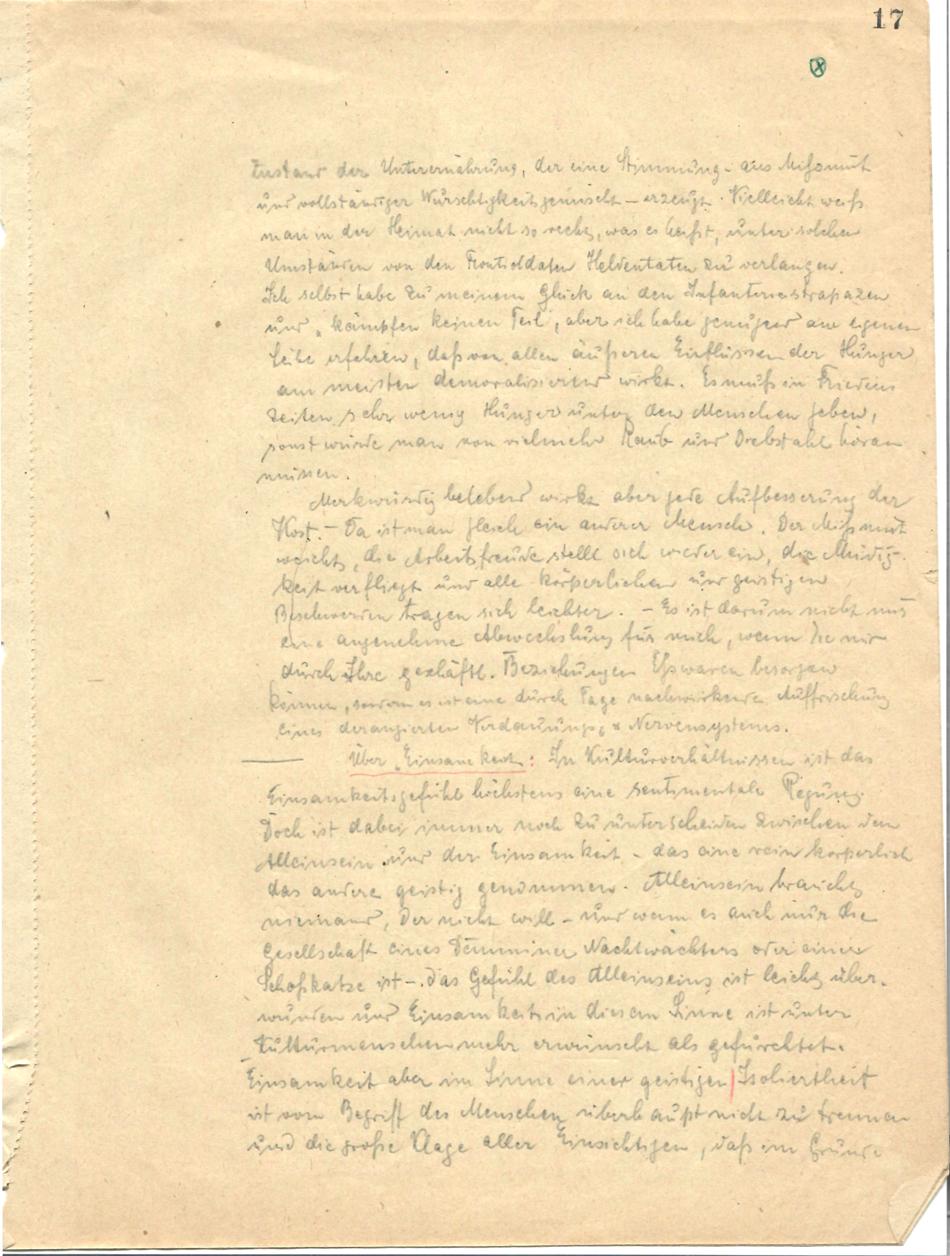 17
Zustand der Unterernährung, der eine Stimmung - aus Mißmut
und vollständiger Wurschtigkeit gemischt - erzeugt. Vielleicht weiß
man in der Heimat nicht so recht, was es heißt, unter solchen
Umständen von den Frontsoldaten Heldentaten zu verlangen.
Ich selbst habe zu meinem Glück an den Infanteriestrapazen
und "kämpfen keinen Teil", aber ich habe genügend am eigenen
Leibe erfahren, daß von allen äußeren Einflüssen der Hunger
am meisten demoralisierend wirkt. Es muß in Friedens
zeiten sehr wenig Hunger unter den Menschen geben,
sonst würde man von vielmehr Raub und Diebstahl hören
müssen.
Merkwürdig belebend wirkt aber jede Aufbesserung der
Kost. - Da ist man gleich ein anderer Mensch. Der Mißmut
weicht, die Arbeitsfreude stellt sich wieder ein, die Müdig-
keit verfliegt und alle körperlichen und geistigen
Beschwerden tragen sich leichter. - Es ist darum nicht nur
eine angenehme Abwechslung für mich, wenn Sie mir
durch Ihre geschäftl. Beziehungen Eßwaren besorgen
können, sondern es ist eine durch Tage nachwirkende Auffrischung
eines derangierten Verdauungs- & Nervensystems.
Über "Einsamkeit": In Kulturverhältnissen ist das
Einsamkeitsgefühl höchstens eine sentimentale Regung.
Doch ist dabei immer noch zu unterscheiden zwischen dem
Alleinsein und der Einsamkeit - das eine rein körperlich
das andere geistig genommen. Alleinsein braucht
niemand, der nicht will - und wenn es auch nur die
Gesellschaft eines Nachtwächters oder einer
Schoßkatze ist -. Das Gefühl des Alleinseins ist leicht über-
wunden und Einsamkeit in diesem Sinne ist unter
Kulturmenschen mehr erwünscht als gefürchtet.
Einsamkeit aber im Sinne einer geistigen Isoliertheit
ist vom Begriff des Menschen überhaupt nicht zu trennen
und die große Klage aller Einsichtigen, daß im Grunde